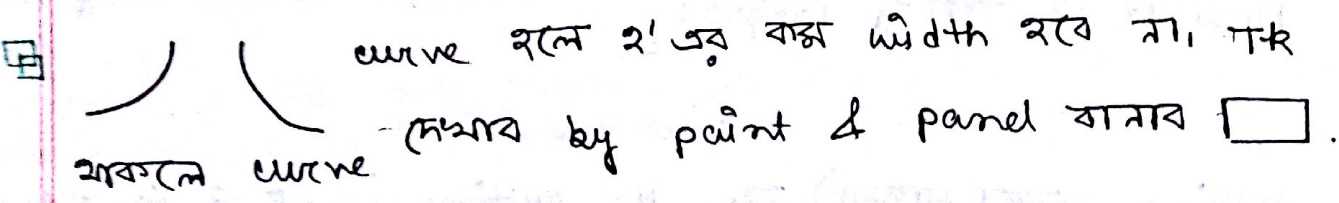 curve হলে ২' এর বাক্স width হবে না, TR
থাকলে curve দেখাব by paint & panel বানাব